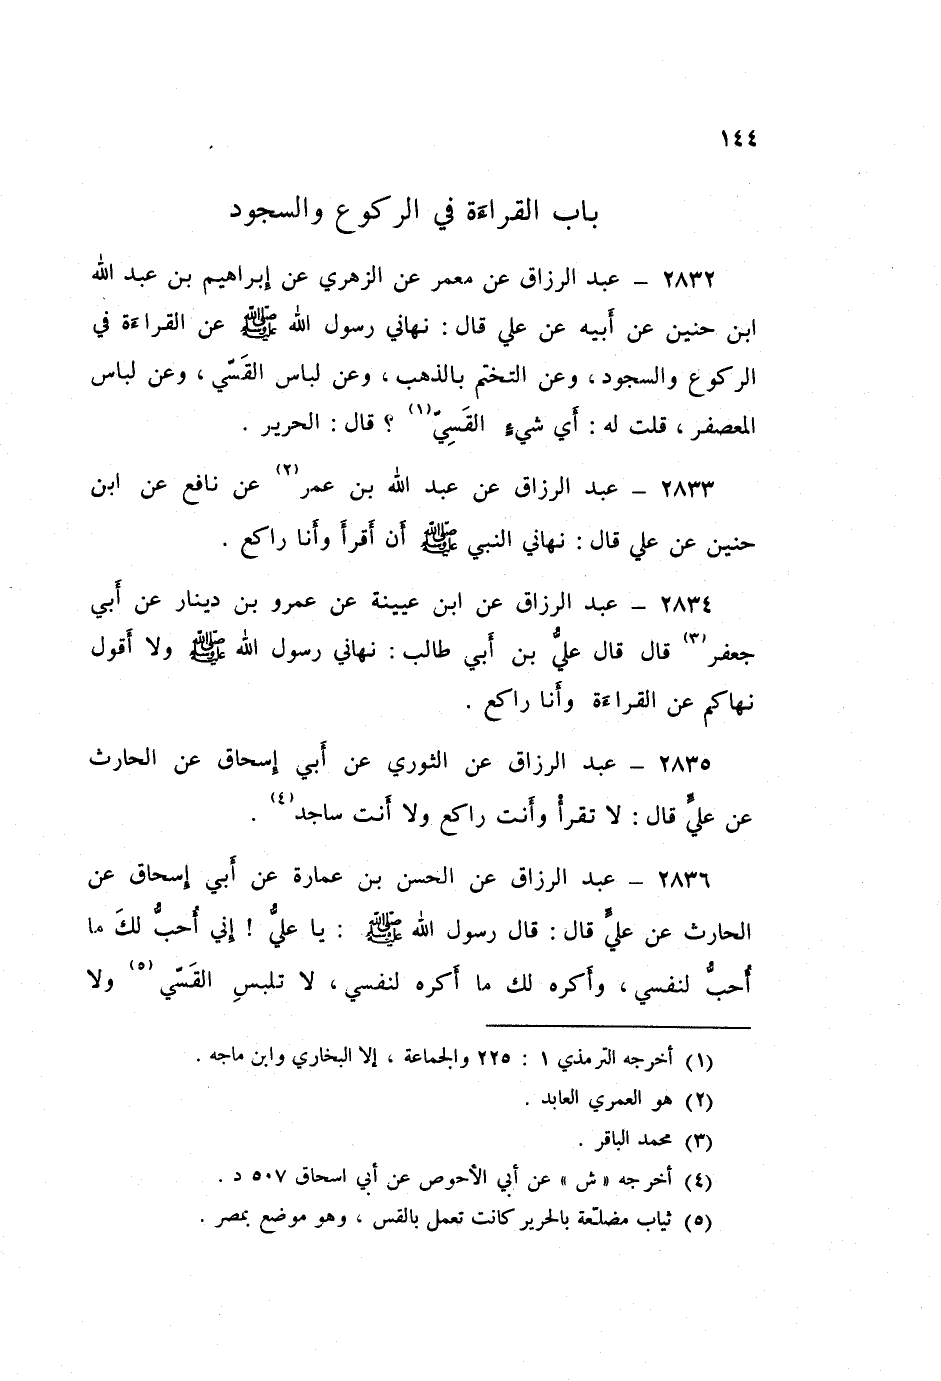 ١٤٤
باب القراءة في الركوع والسجود
٢٨٣٢ – عبد الرزاق عن معمر عن الزهري عن إبراهيم بن عبد الله
ابن حنين عن أبيه عن علي قال : نهاني رسول الله ﷺ عن القراءة في
الركوع والسجود ، وعن التختم بالذهب ، وعن لباس القَسّي ، وعن لباس
المعصفر ، قلت له : أي شيءٍ القَسِيّ(١) ؟ قال : الحرير .
٢٨٣٣ – عبد الرزاق عن عبد الله بن عمر(٢) عن نافع عن ابن
حنين عن علي قال : نهاني النبي ﷺ أن أقرأَ وأنا راكع .
٢٨٣٤ – عبد الرزاق عن ابن عيينة عن عمرو بن دينار عن أَبي
جعفر(٣) قال قال عليُّ بن أَبي طالب : نهاني رسول الله ﷺ ولا أَقول
نهاكم عن القراءة وأَنا راكع .
٢٨٣٥ – عبد الرزاق عن الثوري عن أَبي إسحاق عن الحارث
عن عليٍّ قال : لا تقرأْ وأَنت راكع ولا أَنت ساجد(٤) .
٢٨٣٦ – عبد الرزاق عن الحسن بن عمارة عن أَبي إسحاق عن
الحارث عن عليٍّ قال : قال رسول الله ﷺ : يا عليُّ ! إني أُحبُّ لكَ ما
أُحبُّ لنفسي ، وأَكره لك ما أَكره لنفسي ، لا تلبسِ القَسّي(٥) ولا
(١) أخرجه الترمذي ١ : ٢٢٥ والجماعة ، إلا البخاري وابن ماجه .
(٢) هو العمري العابد .
(٣) محمد الباقر .
(٤) أخرجه «ش» عن أبي الأحوص عن أبي اسحاق ٥٠٧ د .
(٥) ثياب مضلّعة بالحرير كانت تعمل بالقس ، وهو موضع بمصر .